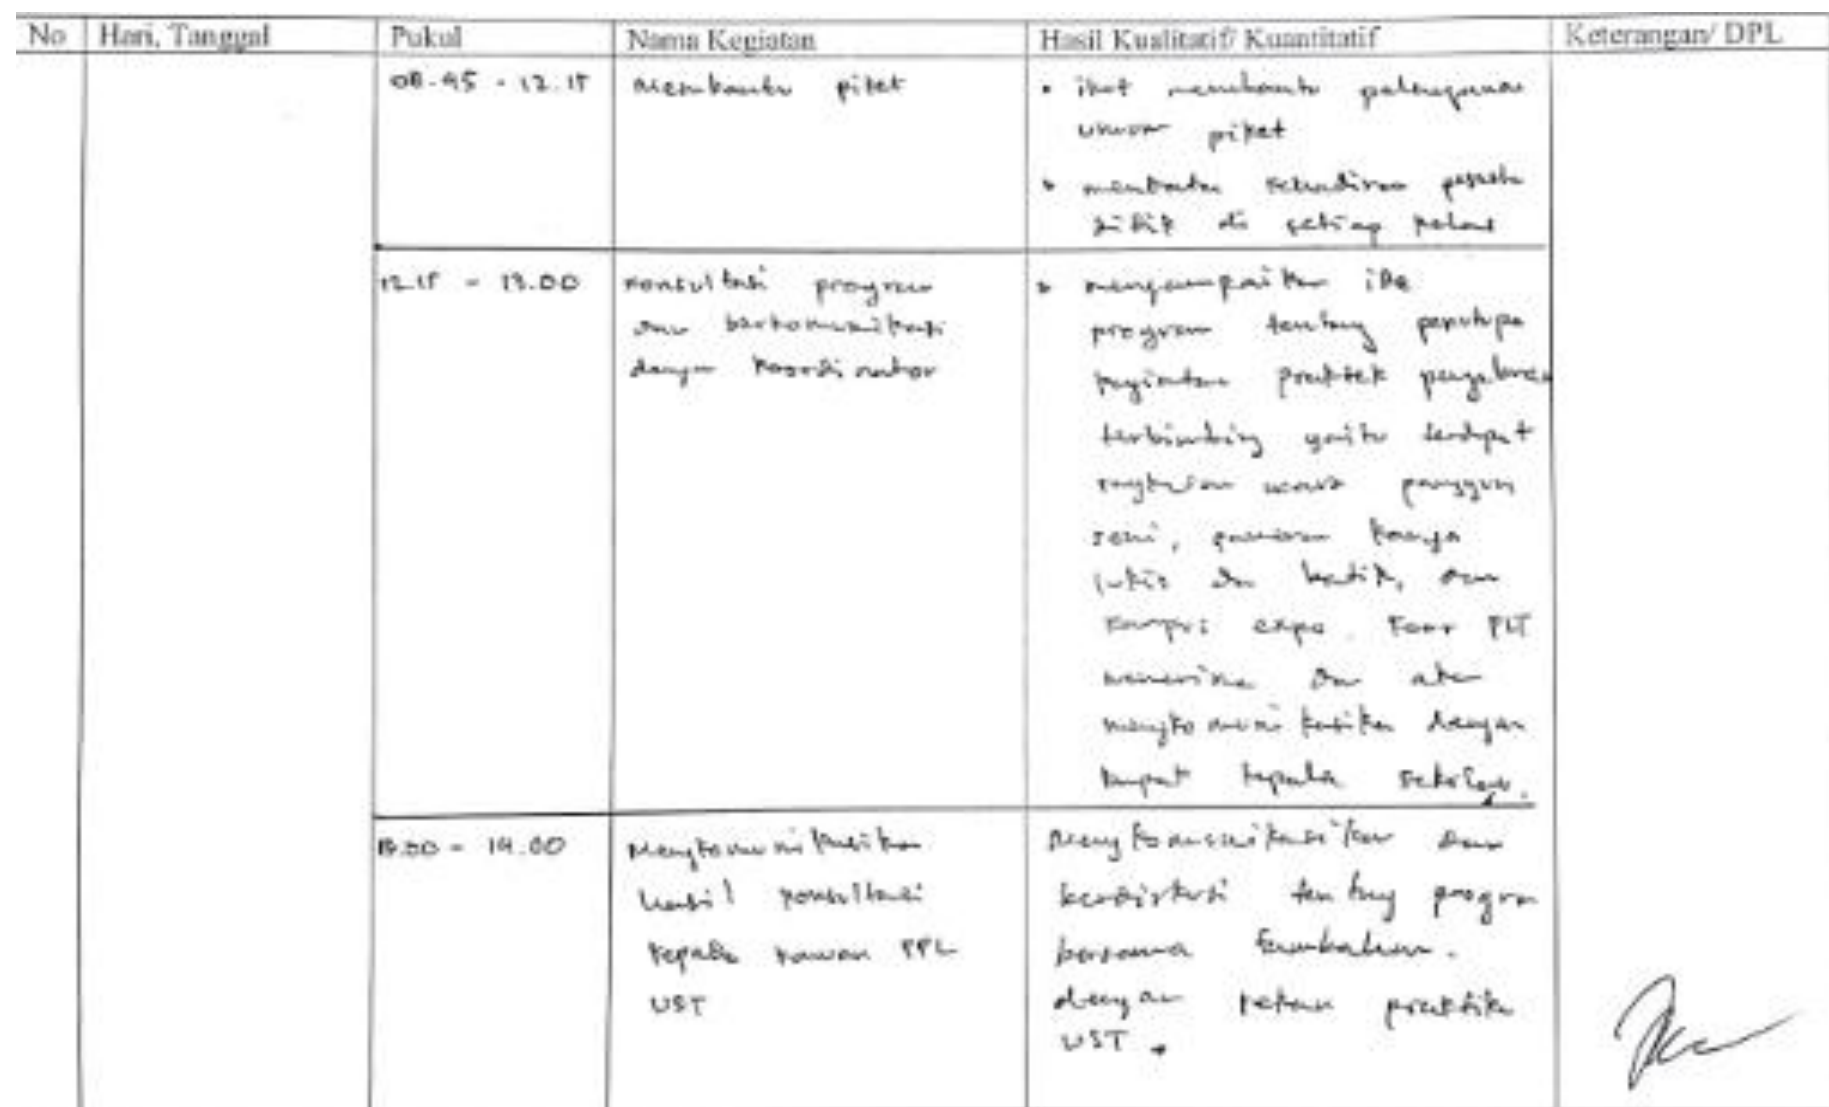 No Hari, Tanggal Pukul Nama Kegiatan Hasil Kualitatif/ Kuantitatif Keterangan/ DPL
08.45 - 12.15
Membantu piket
• ikut membantu
piket
• kehadiran peserta
didik di setiap kelas
12.15 - 13.00
Konsultasi program
dan berkomunikasi
dengan koordinator
• menyampaikan ide
program tentang
kegiatan praktek
terbimbing yaitu terdapat
rangkaian
seni, pameran karya
lukis dan batik, dan
expo.
menerima dan
mengkomunikasikan dengan
kepala sekolah.
13.00 - 14.00
Mengkomunikasikan
hasil konsultasi
kepada kawan PPL
UST
Mengkomunikasikan dan
berdiskusi tentang program
bersama
dengan rekan
UST.